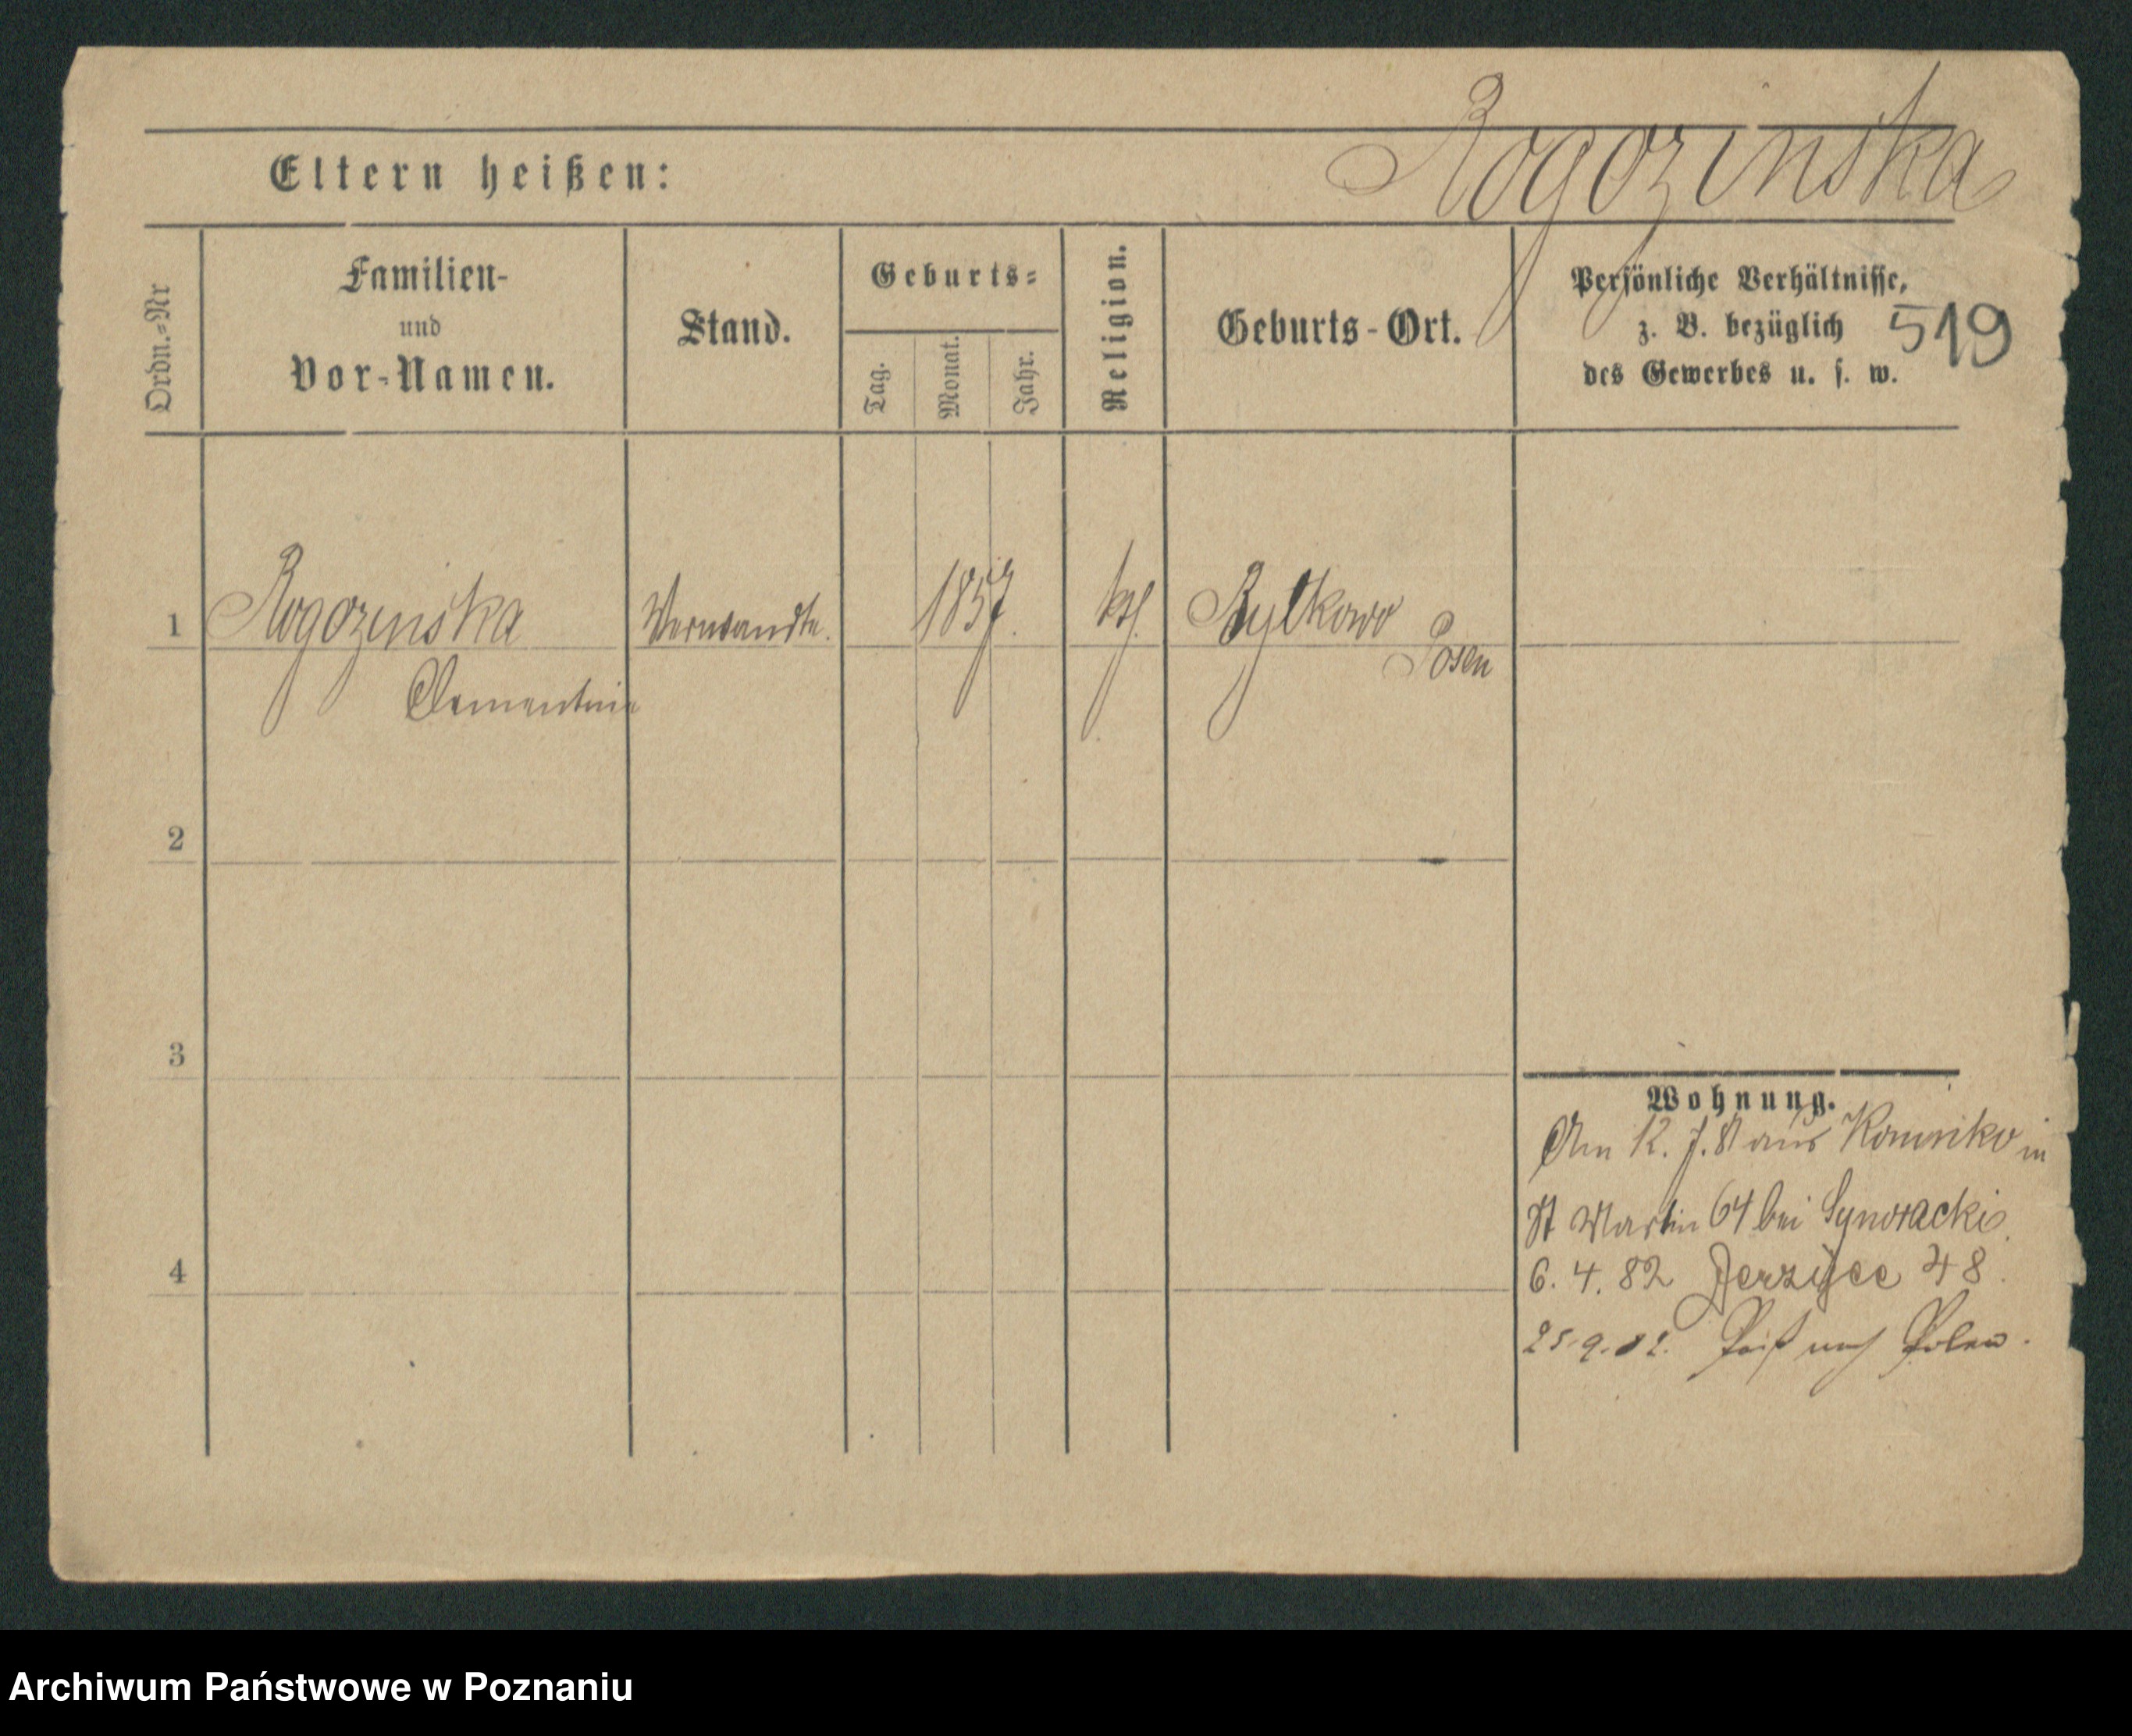 Rogozinska
Eltern heißen:
Ordn.=Nr
Familien-
und
Vor-Namen.
Stand.
Geburts=
Tag.
Monat.
Jahr.
Religion.
Geburts-Ort.
Persönliche Verhältnisse,
z. B. bezüglich
des Gewerbes u. s. w.
519
1 Rogozinska Verwandte. 1857. kth. Bytkowo
Posen
Clementine
2
3
4
Wohnung.
Am 12. 7. 81 aus in
St Martin 64 bei Synoracki.
6. 4. 82 Jerzyce 48.
25.9.82. nach Polen.
Archiwum Państwowe w Poznaniu